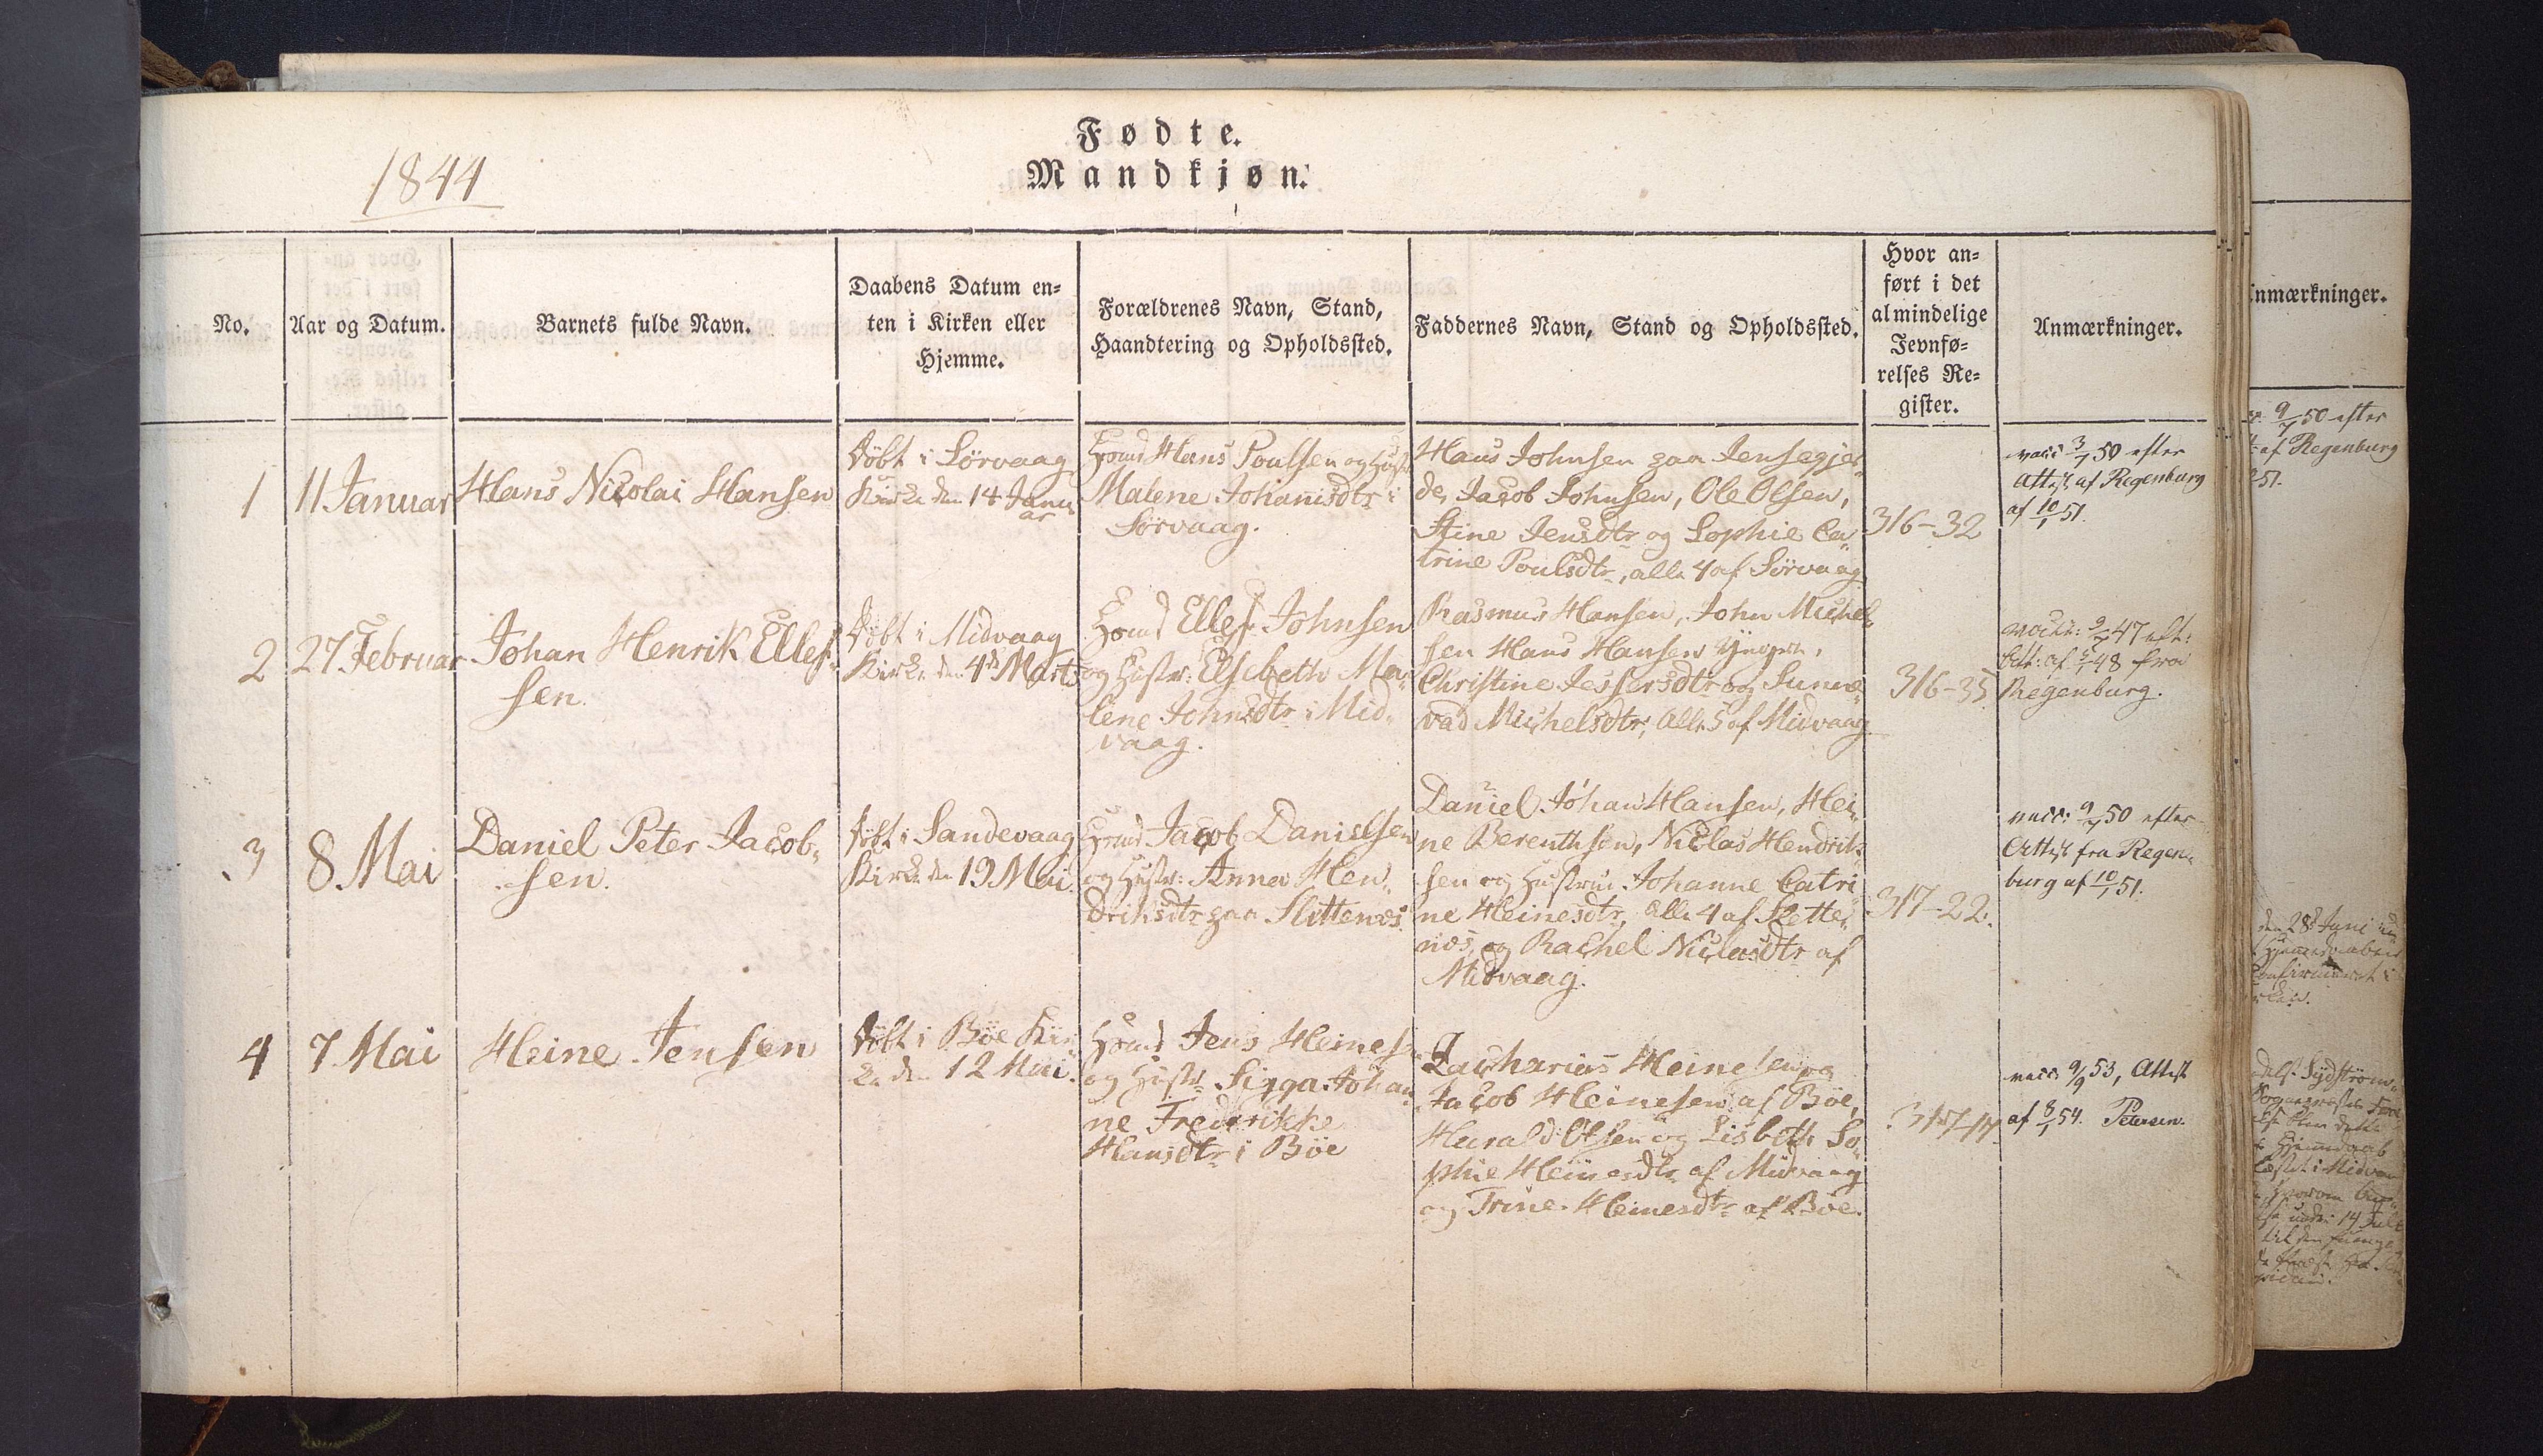 Fødte.
Mandkjøn.
1844
No.
Aar og Datum.
Barnets fulde Navn.
Daabens Datum en-
ten i Kirken eller
Hjemme.
Forældrenes Navn, Stand,
Haandtering og Opholdssted.
Faddernes Navn, Stand og Opholdssted.
Hvor an-
ført i det
almindelige
Jevnfø-
relses Re-
gister.
Anmærkninger.
1
11 Januar
Hans Nicolai Hansen
Döbt i Sörvaag
Kirke den 14 Janu
ar
Hans Poulsen og
Malene Johannisdtr i
Sörvaag.
Hans Johnsen paa Jensegjer
de, Jacob Johnsen, Ole Olsen,
Stine Jensdtr og Sophie Ca
trine Poulsdtr, alle 4 af Sörvaag
316-32
vacc 3/7 50 efter
Attest af Regenburg
af 10/1 51.
2
27 Februar
Johan Henrik Ellef-
sen.
Döbt i Midvaag
Kirke den 4de Marts
Ellef Johnsen
og Hustr: Elsebeth Ma-
lene Johnsdtr i Mid-
vaag.
Rasmus Hansen, John Michel-
sen Hans Hansen
Christine Jespersdtr og Sunne-
vad Michelsdtr, alle 5 af Midvaag
316-35
47 eft:
Att: af 48 fra
Regenburg.
3
8 Mai
Daniel Peter Jacob-
sen.
Döbt i Sandevaag
Kirke den 19 Mai.
Jacob Danielsen
og Hustr: Anna Hen-
driksdtr paa Slettenæs.
Daniel Johan Hansen, Hei-
ne Berenthsen, Niclas Hendrik-
sen og Hustrue Johanne Catri
ne Heinesdtr, alle 4 af Slette-
næs, og Rachel Niclasdtr af
Midvaag.
317-22.
vacc: 9/7 50 efter
Attest fra Regen-
burg af 10/1 51.
4
7 Mai
Heine Jensen
Döbt i Böe Kir
ke den 12 Mai.
Jens Heinesen
og Hustr Sigga Johan-
ne Frederikke
Hansdtr i Böe
Zacharias Heinesen og
Jacob Heinesen af Böe,
Harald Olsen og Lisbeth So-
phie Heinesdtr af Midvaag
og Trine Heinesdtr af Böe.
vacc 9/9 53, Attest
af 8/1 54. Petersen.
nmærkninger.
9/7 50 efter
af Regenburg
51.
den 28de Juni